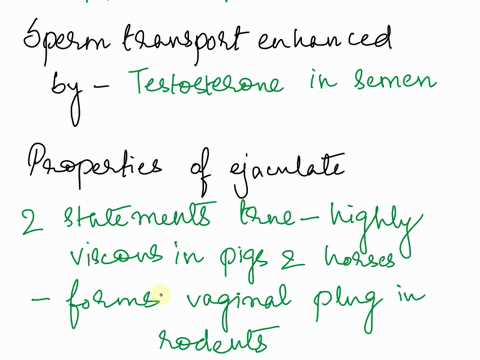 Sperm transport enhanced
by - Testosterone in semen
Properties of ejaculate
2 statements true - highly
viscous in pigs & horses
- forms vaginal plug in
rodents